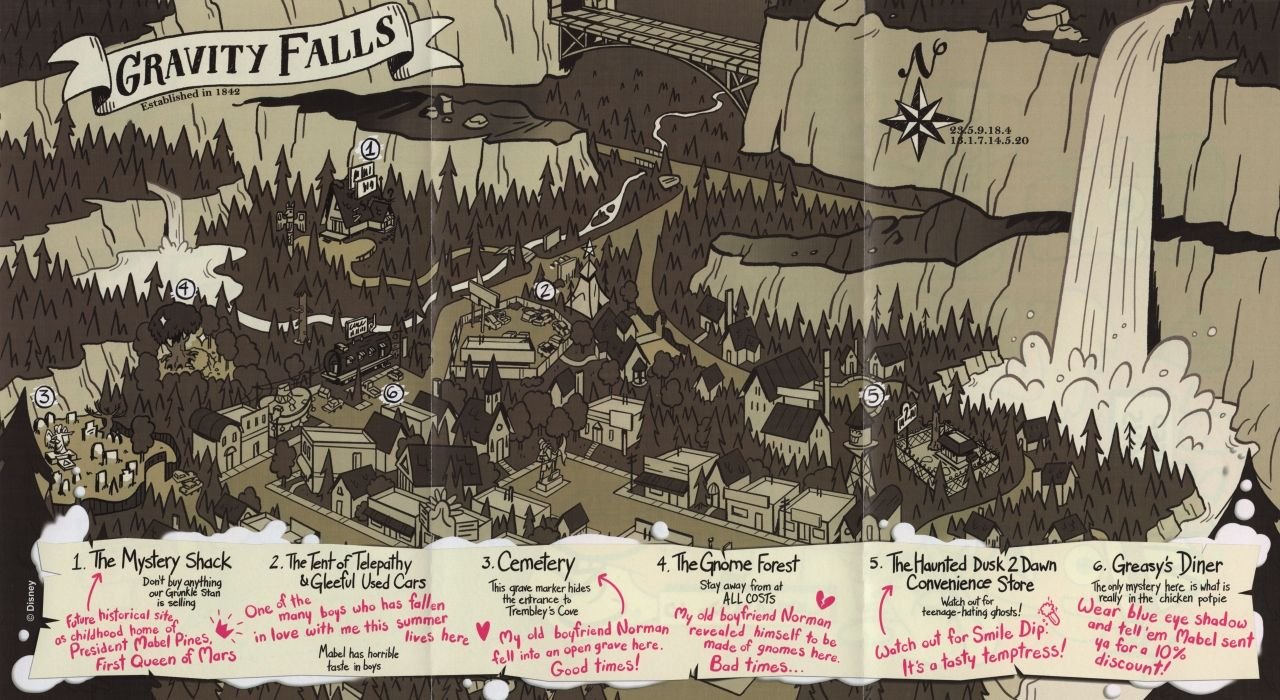 GRAVITY FALLS
Established in 1842
N
23.5.9.18.4
13.1.7.14.5.20
1
2
4
3
6
5
1. The Mystery Shack
Don't buy anything
our Grunkle Stan
is selling
Future historical site,
as childhood home of
President Mabel Pines,
First Queen of Mars
2. The Tent of Telepathy
& Gleeful Used Cars
One of the
many boys who has fallen
in love with me this summer
lives here
Mabel has horrible
taste in boys
3. Cemetery
This grave marker hides
the entrance to
Trembley's Cove
My old boyfriend Norman
fell into an open grave here.
Good times!
4. The Gnome Forest
Stay away from at
ALL COSTS
My old boyfriend Norman
revealed himself to be
made of gnomes here.
Bad times...
5. The Haunted Dusk 2 Dawn
Convenience Store
Watch out for
teenage-hating ghosts!
Watch out for Smile Dip:
It's a tasty temptress!
6. Greasy's Diner
The only mystery here is what is
really in the chicken potpie
Wear blue eye shadow
and tell 'em Mabel sent
ya for a 10%
discount!
© Disney